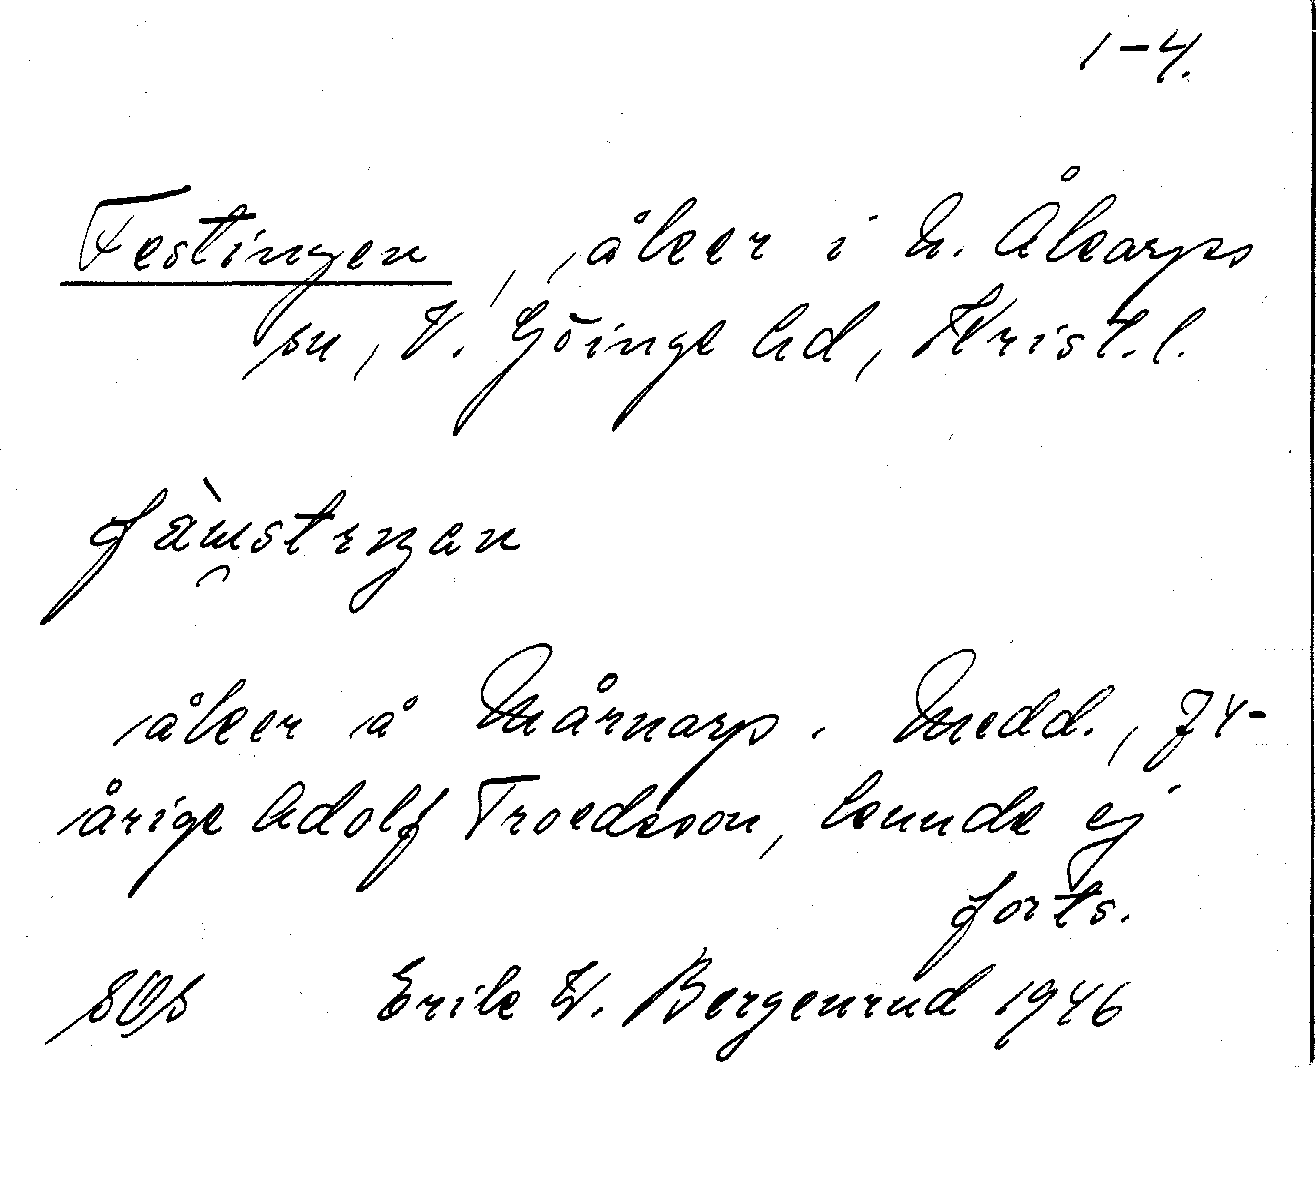 1-4.
Festingen, åker i N. Åkarps
sn, V. Göinge hd, Krist. l.
åker å Mårnarp. Medd., 74-
årige Adolf Troedsson, kunde ej
forts.
SOS Erik W. Bergenrud 1946